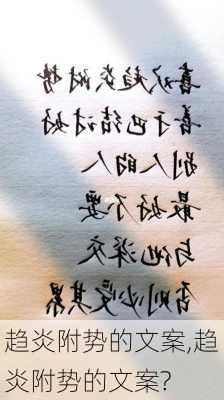 喜欢趋炎附势
善于巴结讨好
别人的人
最好不要
与他深交
否则必受其累
趋炎附势的文案,趋
炎附势的文案?